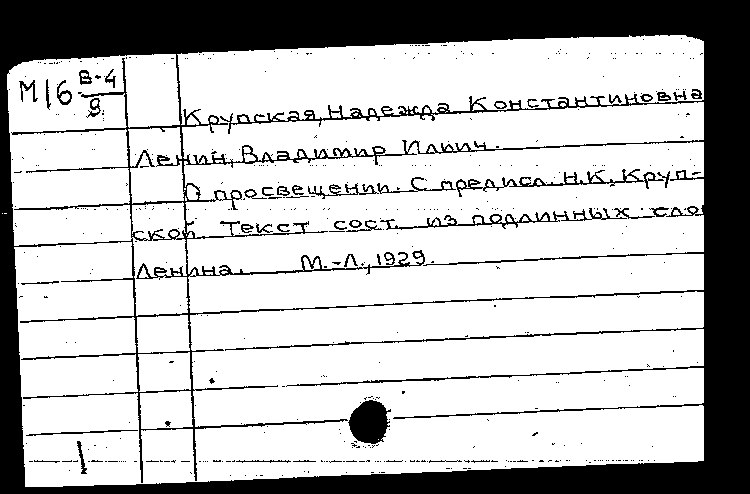 М16 В-4
9
Крупская, Надежда Константиновна
Ленин, Владимир Ильич.
О просвещении. С предисл. Н.К. Круп-
ской. Текст сост. из подлинных сло
Ленина. М.-Л., 1929.